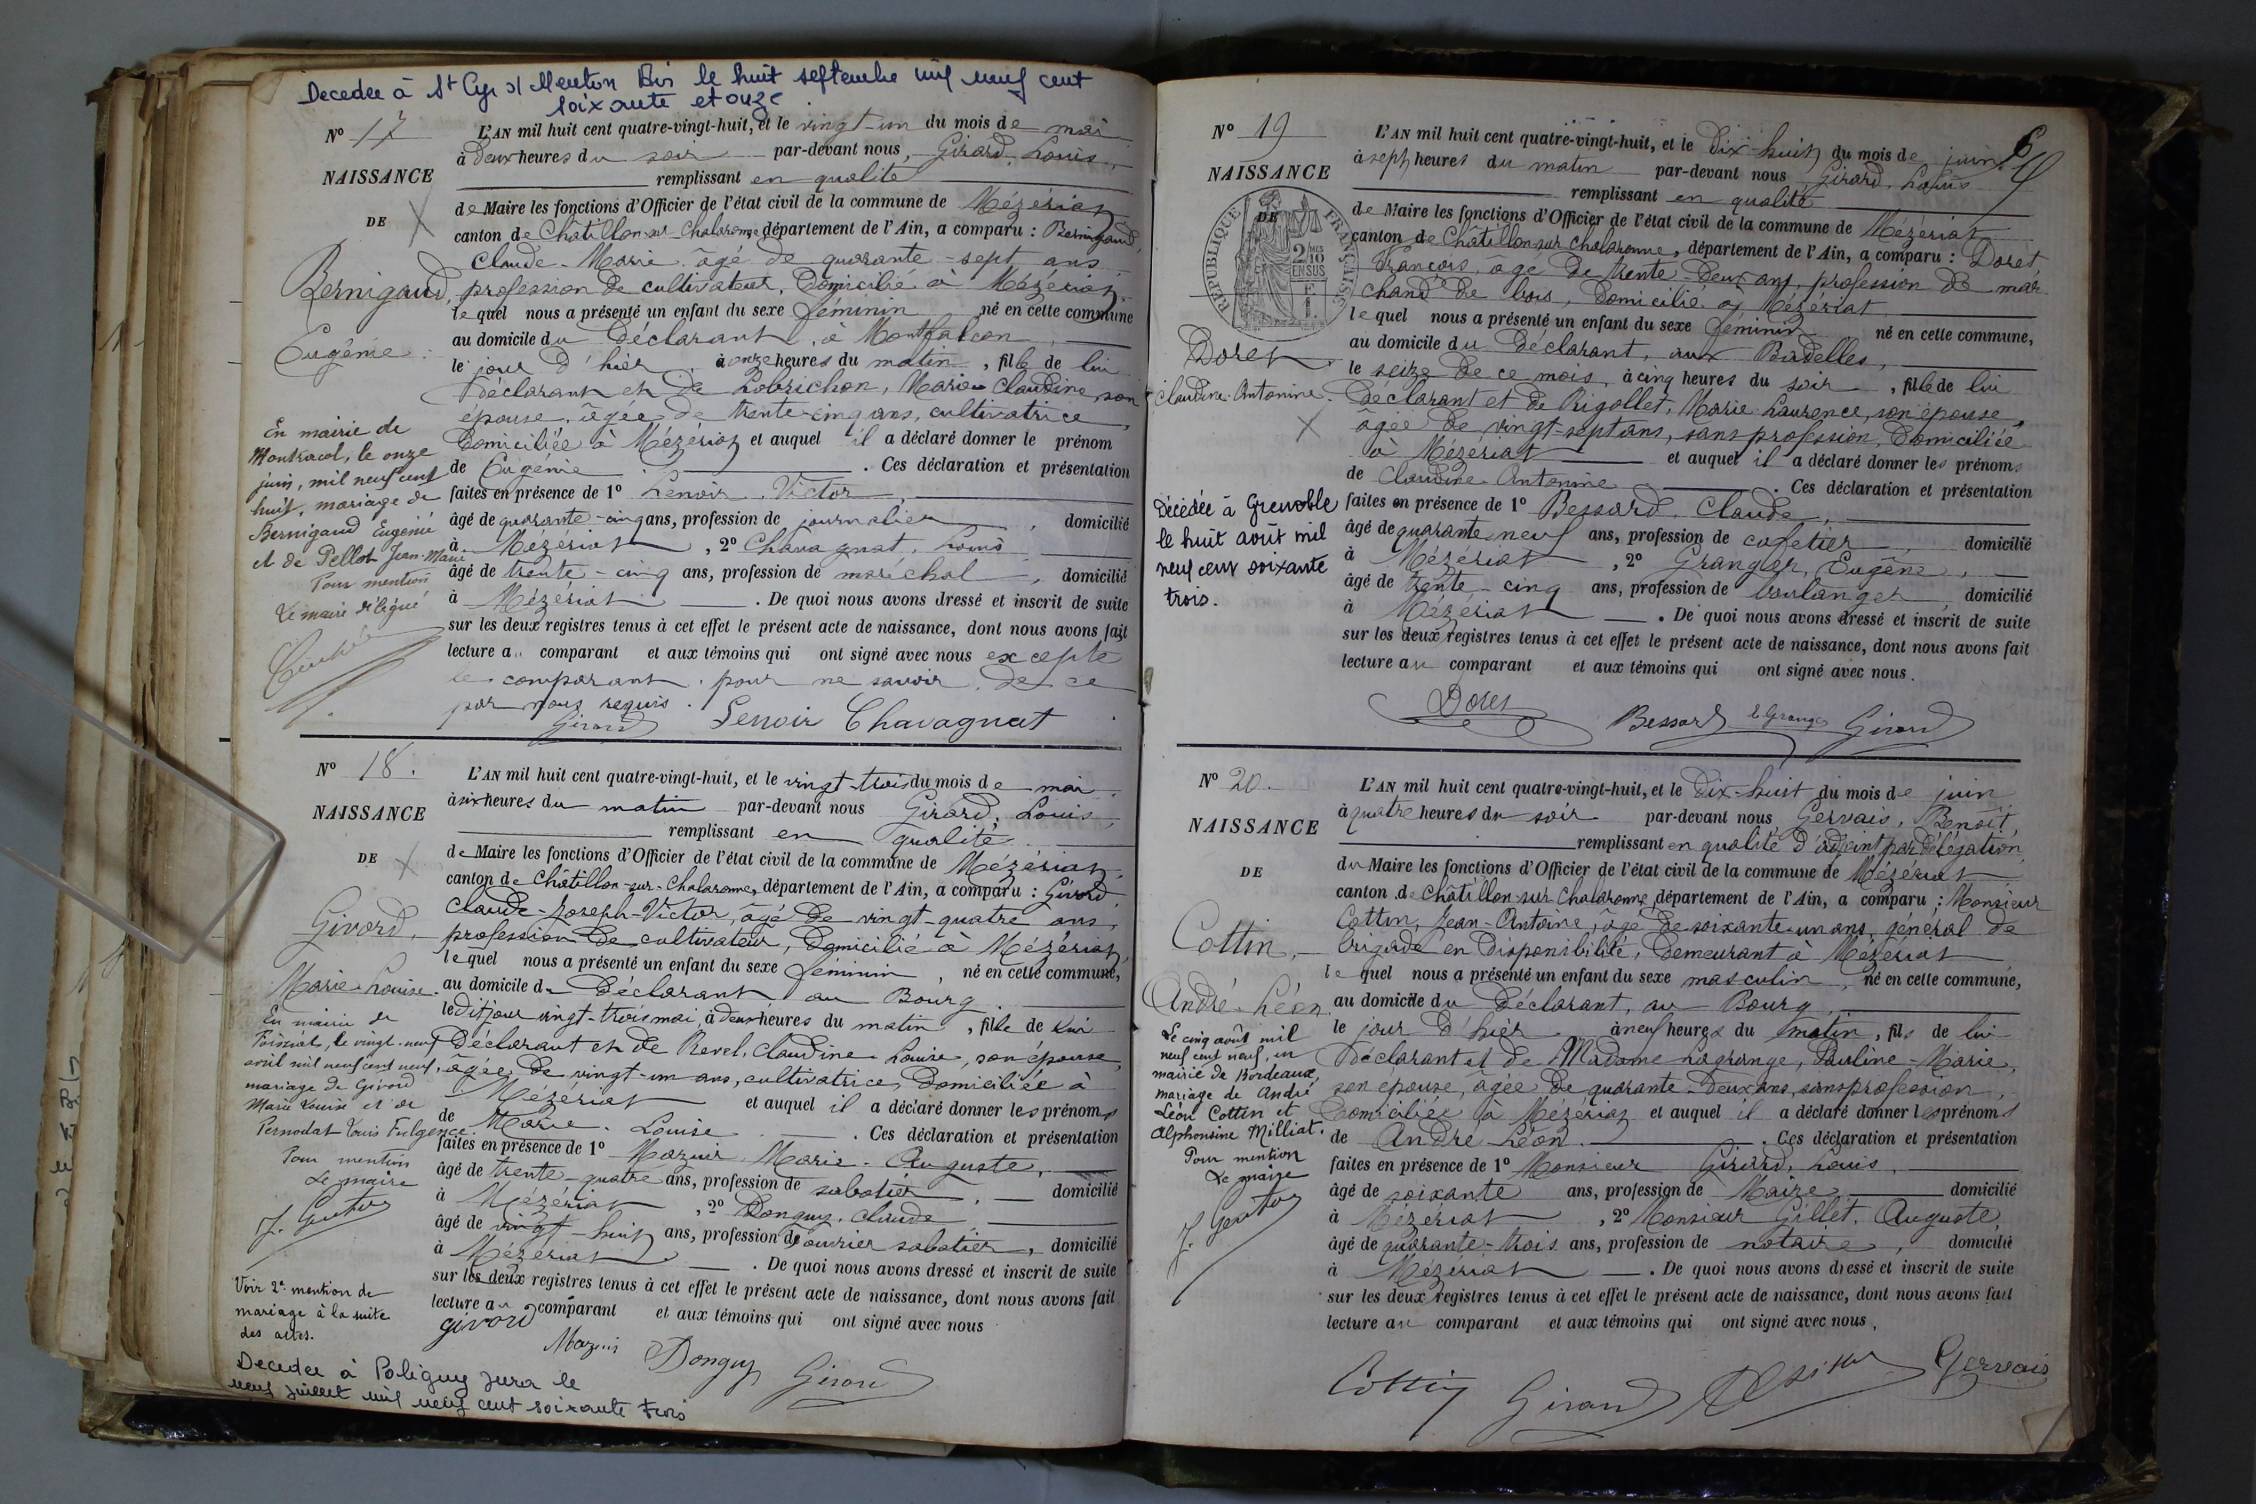 Decedee à St Cyr s/ Menton Bis le huit septembre mil neuf cent
soixante et onze
N° 17
NAISSANCE
DE
Bernigaud,
Eugénie.
En mairie de
Montracol, le onze
juin, mil neuf cent
huit, mariage de
Bernigaud Eugénie
et de Pellot Jean-Marie
Pour mention
Le maire délégué
L'AN mil huit cent quatre-vingt-huit, et le vingt-un du mois de mai
à deux heures du soir par-devant nous, Girard, Louis,
remplissant en qualité
de Maire les fonctions d'Officier de l'état civil de la commune de Mézériat,
canton de Châtillon-sur-Chalaronne, département de l'Ain, a comparu : Bernigaud,
Claude-Marie, âgé de quarante-sept ans
profession de cultivateur, domicilié à Mézériat,
lequel nous a présenté un enfant du sexe féminin né en cette commune
au domicile du déclarant, à Montfalcon,
le jour d'hier, à onze heures du matin, fille de lui
déclarant et de Lobrichon, Marie-Claudine, son
épouse, âgée de trente-cinq ans, cultivatrice,
domiciliée à Mézériat et auquel il a déclaré donner le prénom
de Eugénie. Ces déclaration et présentation
faites en présence de 1° Lenoir, Victor,
âgé de quarante-cinq ans, profession de journalier, domicilié
à Mézériat, 2° Chavagnat, Louis
âgé de trente-cinq ans, profession de maréchal, domicilié
à Mézériat. De quoi nous avons dressé et inscrit de suite
sur les deux registres tenus à cet effet le présent acte de naissance, dont nous avons fait
lecture au comparant et aux témoins qui ont signé avec nous excepté
le comparant, pour ne savoir, de ce
par nous requis.
Girard Lenoir Chavagnat
N° 18.
NAISSANCE
DE
Givord,
Marie-Louise.
En mairie de
le vingt-neuf
avril mil neuf cent neuf,
mariage de Givord
Marie Louise et de
Pernodat Louis Fulgence.
Pour mention
Le maire
Voir 2e mention de
mariage à la suite
des actes.
Decedee à Poligny Jura le
neuf juillet mil neuf cent soixante trois
L'AN mil huit cent quatre-vingt-huit, et le vingt-trois du mois de mai
à six heures du matin par-devant nous Girard, Louis,
remplissant en qualité
de Maire les fonctions d'Officier de l'état civil de la commune de Mézériat,
canton de Châtillon-sur-Chalaronne, département de l'Ain, a comparu : Givord,
Claude-Joseph-Victor, âgé de vingt-quatre ans,
profession de cultivateur, domicilié à Mézériat,
lequel nous a présenté un enfant du sexe féminin, né en cette commune,
au domicile du déclarant, au Bourg
le dit jour vingt-trois mai, à deux heures du matin, fille de lui
déclarant et de Revel, Claudine-Louise, son épouse,
âgée de vingt-un ans, cultivatrice, domiciliée à
Mézériat et auquel il a déclaré donner les prénoms
de Marie-Louise. Ces déclaration et présentation
faites en présence de 1° Mazuir, Marie-Auguste,
âgé de trente-quatre ans, profession de sabotier, domicilié
à Mézériat, 2° Donguy, Claude
âgé de vingt-huit ans, profession d'ouvrier sabotier, domicilié
à Mézériat. De quoi nous avons dressé et inscrit de suite
sur les deux registres tenus à cet effet le présent acte de naissance, dont nous avons fait
lecture au comparant et aux témoins qui ont signé avec nous
Givord Mazuir Donguy Girard
6
N° 19
NAISSANCE
DE
RÉPUBLIQUE FRANÇAISE
2/10 EN SUS
Doret,
Claudine-Antonine.
Décédée à Grenoble
le huit août mil
neuf cent soixante
trois.
L'AN mil huit cent quatre-vingt-huit, et le dix-huit du mois de juin
à sept heures du matin par-devant nous Girard, Louis
remplissant en qualité
de Maire les fonctions d'Officier de l'état civil de la commune de Mézériat
canton de Châtillon-sur-Chalaronne, département de l'Ain, a comparu : Doret
François, âgé de trente-deux ans, profession de mar
chand de bois, domicilié à Mézériat
lequel nous a présenté un enfant du sexe féminin né en cette commune,
au domicile du déclarant, aux Badelles,
le seize de ce mois, à cinq heures du soir, fille de lui
déclarant et de Rigollet, Marie-Laurence, son épouse,
âgée de vingt-sept ans, sans profession, domiciliée
à Mézériat et auquel il a déclaré donner les prénoms
de Claudine-Antonine. Ces déclaration et présentation
faites en présence de 1° Bessard, Claude,
âgé de quarante-neuf ans, profession de cafetier, domicilié
à Mézériat, 2° Granger, Eugène,
âgé de trente-cinq ans, profession de boulanger domicilié
à Mézériat. De quoi nous avons dressé et inscrit de suite
sur les deux registres tenus à cet effet le présent acte de naissance, dont nous avons fait
lecture au comparant et aux témoins qui ont signé avec nous.
Doret Bessard E. Granger Girard
N° 20.
NAISSANCE
DE
Cottin,
André-Léon.
Le cinq août mil
neuf cent neuf, en
mairie de Bordeaux,
mariage de André
Léon Cottin et
Alphonsine Milliat.
Pour mention
Le maire
L'AN mil huit cent quatre-vingt-huit, et le dix-huit du mois de juin
à quatre heures du soir par-devant nous Gervais, Benoît,
remplissant en qualité d'adjoint par délégation
du Maire les fonctions d'Officier de l'état civil de la commune de Mézériat
canton de Châtillon-sur-Chalaronne, département de l'Ain, a comparu : Monsieur
Cottin, Jean-Antoine, âgé de soixante-un ans, général de
brigade en disponibilité, demeurant à Mézériat
lequel nous a présenté un enfant du sexe masculin, né en cette commune,
au domicile du déclarant, au Bourg,
le jour d'hier à neuf heures du matin, fils de lui
déclarant et de Madame Lagrange, Pauline-Marie,
son épouse, âgée de quarante-deux ans, sans profession,
domiciliée à Mézériat et auquel il a déclaré donner les prénoms
de André Léon. Ces déclaration et présentation
faites en présence de 1° Monsieur Girard, Louis,
âgé de soixante ans, profession de Maire domicilié
à Mézériat, 2° Monsieur Gillet, Auguste,
âgé de quarante-trois ans, profession de notaire, domicilié
à Mézériat. De quoi nous avons dressé et inscrit de suite
sur les deux registres tenus à cet effet le présent acte de naissance, dont nous avons fait
lecture au comparant et aux témoins qui ont signé avec nous,
Cottin Girard Gervais